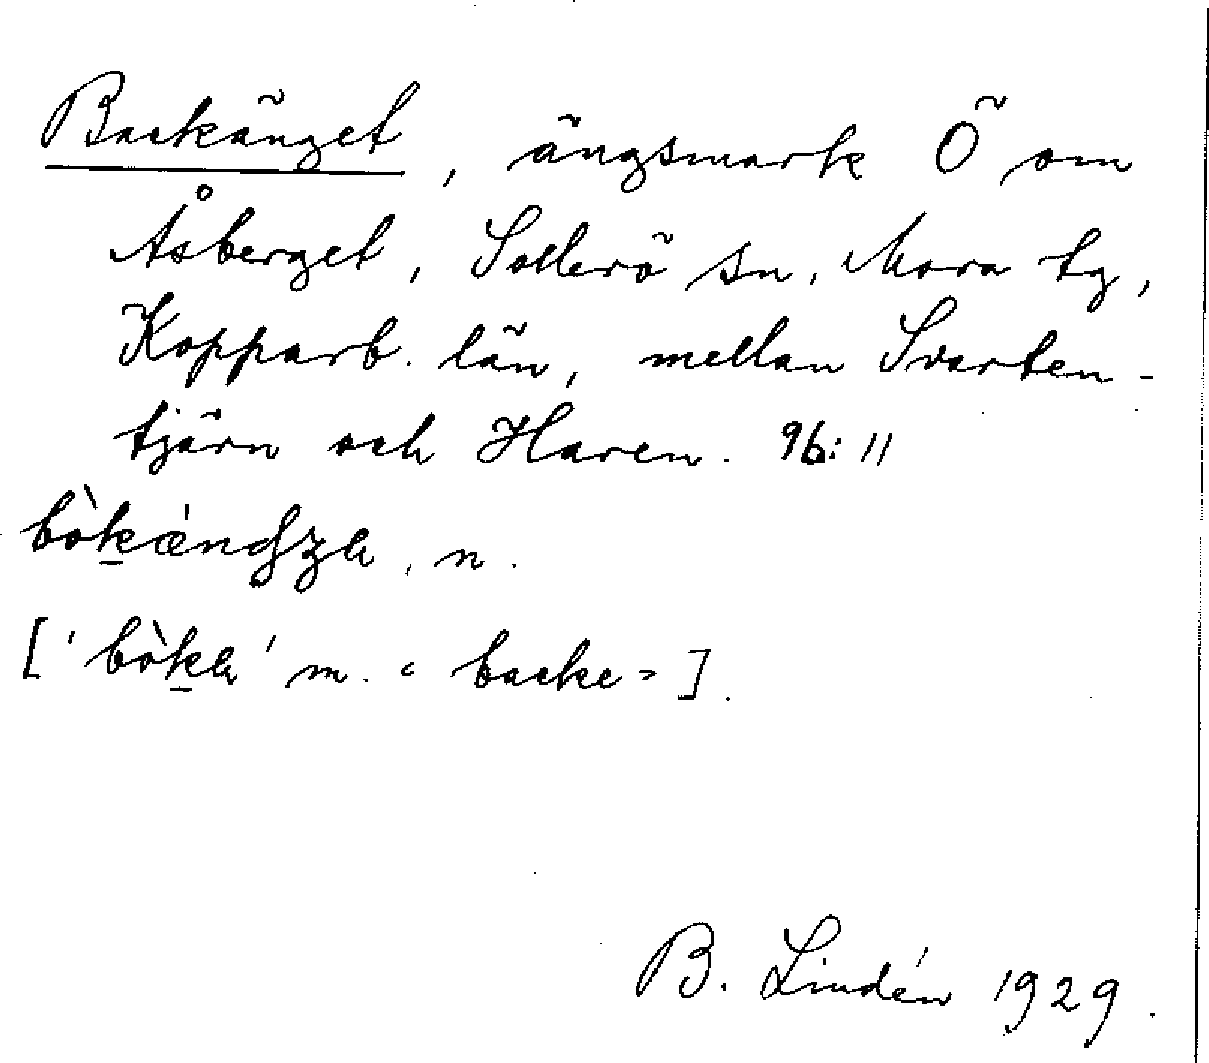 Backänget, ängsmark Ö om
Åsberget, Sollerö sn, Mora tg,
Kopparb. län, mellan Svarten-
tjärn och Haren. 96:11
n.
[ m. "backe"].
B. Lindén 1929.